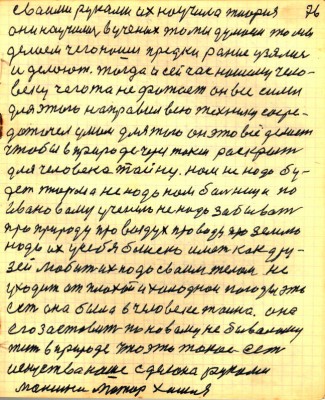 своими руками их научила теория 76
они научились в ученых то мы думаем то мы
делаем чего наши предки ранее взялись
и делают. тогда и сейчас нашему чело-
веку чего та не хватает он все силы
для этого направил всю технику сосре-
доточил умом для того он это всё делает
чтобы в природе чем таки раскрыт
для человека тайну. нам не надо бу-
дет тюрьма не надо нам больницу по
иванову учению не надо забывать
про природу про воздух про воду про землю
надо их у себя близко иметь как дру-
зей любит их надо своим телом не
уходит от плохой и холодной погоды эта
сет она была в человеке тайна. она
его заставит по новому не бывалому
жит в природе что это такое сет
искуства наше сделона руками
машина мотор химия